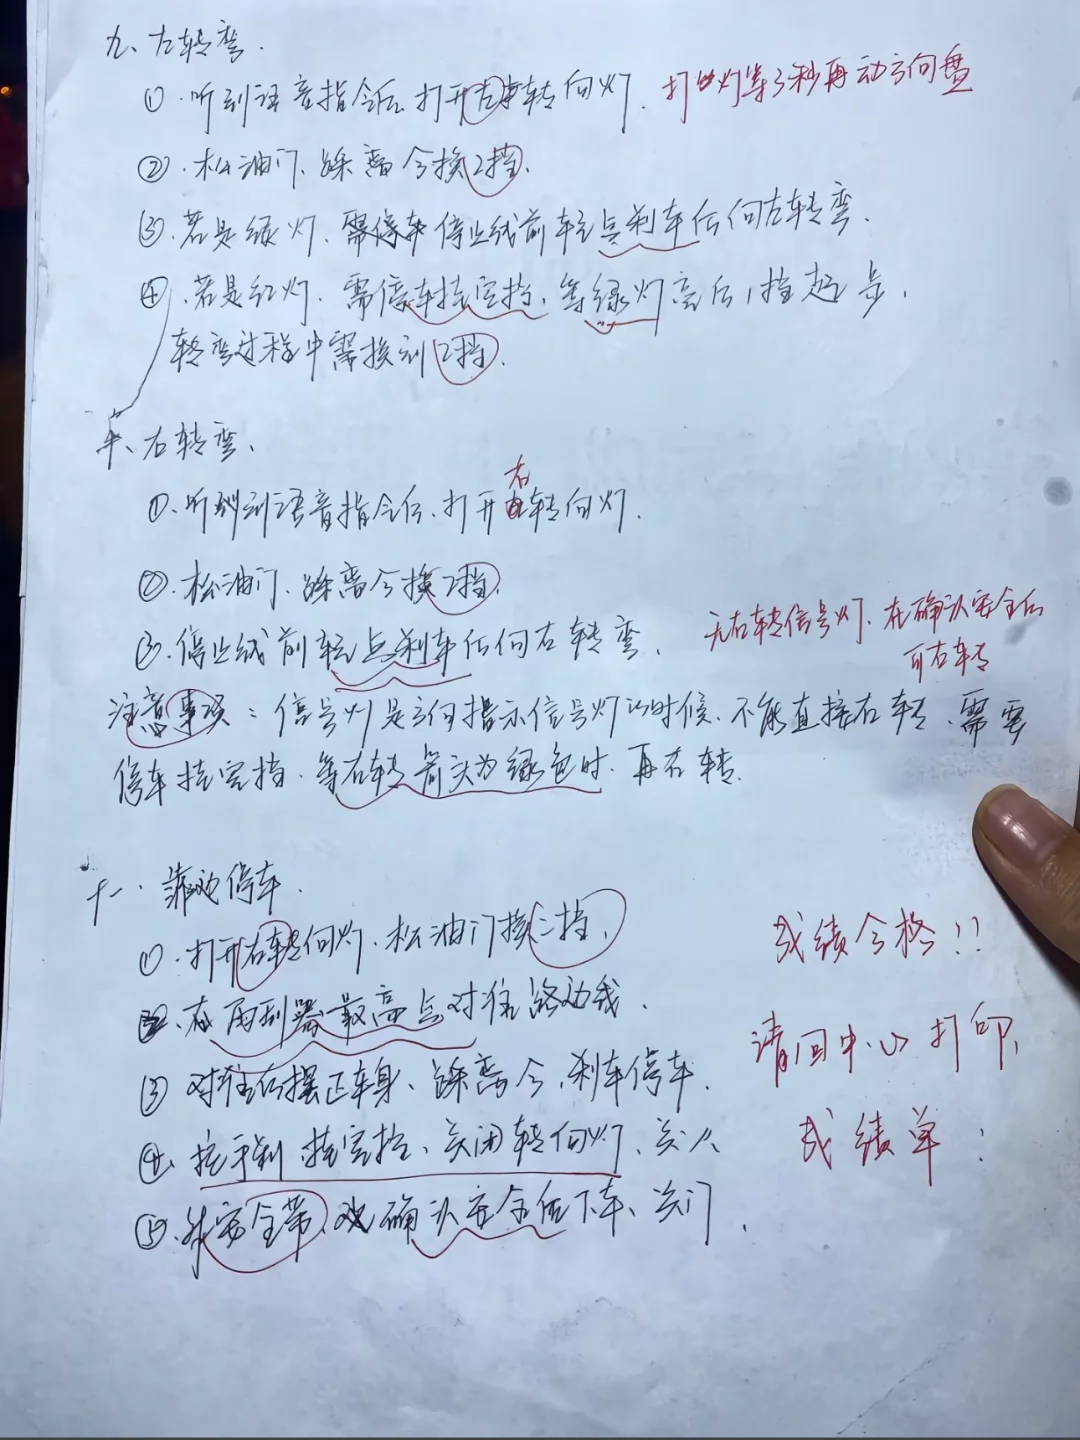 九、左转弯.
①.听到语音指令后.打开左转向灯. 打灯等3秒再动方向盘
②.松油门、踩离合换2挡.
③.若是绿灯.需停车停止线前轻点刹车后向左转弯.
④.若是红灯.需停车挂空挡.等绿灯亮后,1挡起步.
转弯过程中需换到2挡.
十、右转弯、
①.听到语音指令后、打开右转向灯.
②.松油门、踩离合换2挡.
③.停止线前轻点刹车后向右转弯.
无右转信号灯、在确认安全后
可右转
注意事项:信号灯是方向指示信号灯的时候、不能直接右转、需要
停车挂空挡、等右转箭头为绿色时.再右转.
十一.靠边停车.
①.打开右转向灯.松油门换二挡.
②.在雨刮器最高点对准路边线.
③对准后摆正车身、踩离合、刹车停车.
④、拉手刹、挂空挡、关闭转向灯、关火
⑤.解安全带、确认安全后下车、关门.
成绩合格!!
请回中心打印、
成绩单: